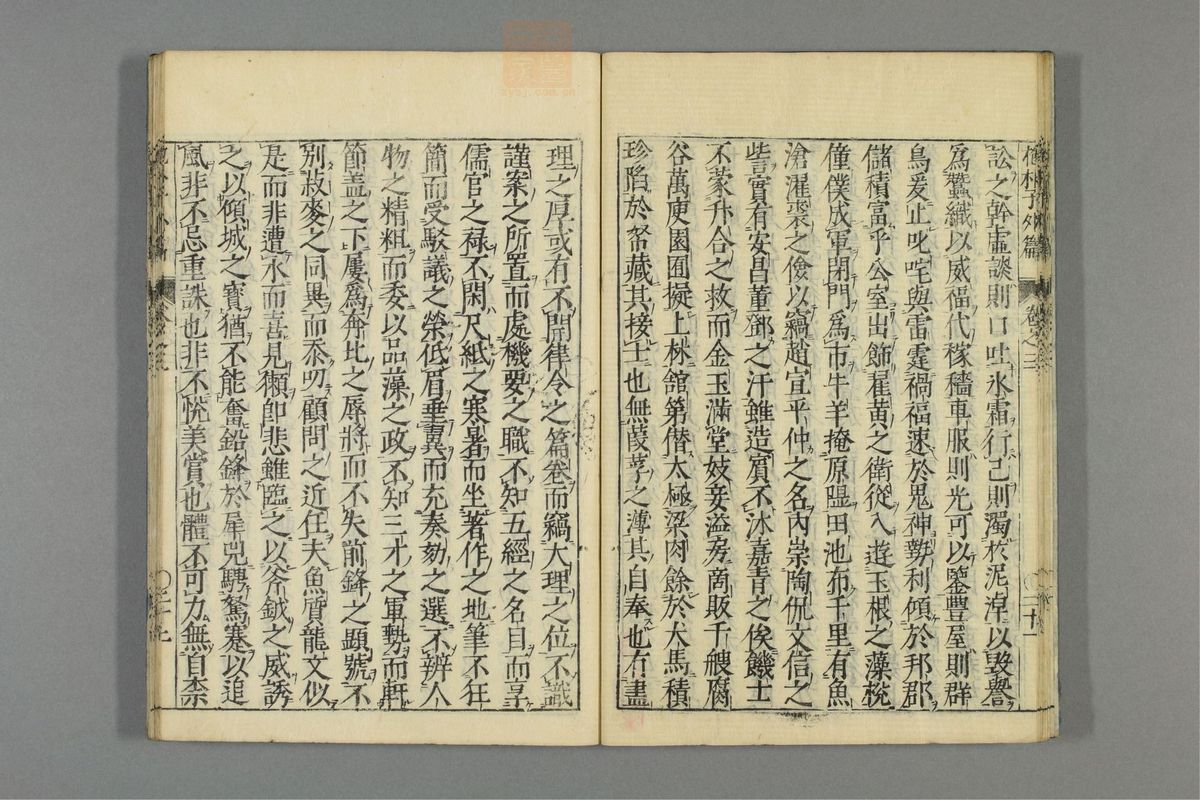 抱朴子外篇 卷之三 二十一
訟之幹虛談則口吐氷霜行己則濁於泥潦以毀譽
爲蠶織以威福代稼穡車服則光可以鑒豐屋則群
烏爰止叱咤與雷霆禍福速於鬼神勢利傾於邦郡
儲積富乎公室出飾翟黃之衛從入遊玉根之藻梲
僮僕成軍閉門爲市牛羊掩原隰田池布千里有魚
滄濯裘之儉以竊趙宣平仲之名內崇陶侃文信之
訾實有安昌董鄧之汙雖造賓不沐嘉旨之俟饑士
不蒙升合之救而金玉滿堂妓妾溢房商販千艘腐
谷萬庾園囿擬上林舘第僣太極梁肉餘於犬馬積
珍陷於帑藏其接士也無葭莩之薄其自奉也有盡
理之厚或有不開律令之篇卷而竊大理之位不識
謹案之所置而處機要之職不知五經之名目而享
儒官之祿不閑尺紙之寒暑而坐著作之地筆不狂
簡而受駁議之榮低眉垂翼而充奏劾之選不辨人
物之精粗而委以品藻之政不知三才之軍勢而軒
節盖之下屢爲奔北之辱將而不失前鋒之顯號不
別菽麥之同異而忝叨顧問之近任夫魚質龍文似
是而非遭水而喜見獺卽悲雖臨之以斧鉞之威誘
之以傾城之寶猶不能奮鉛鋒於犀兕騁駑蹇以追
風非不忌重誅也非不恱美賞也體不可力無自柰
zysj.com.cn